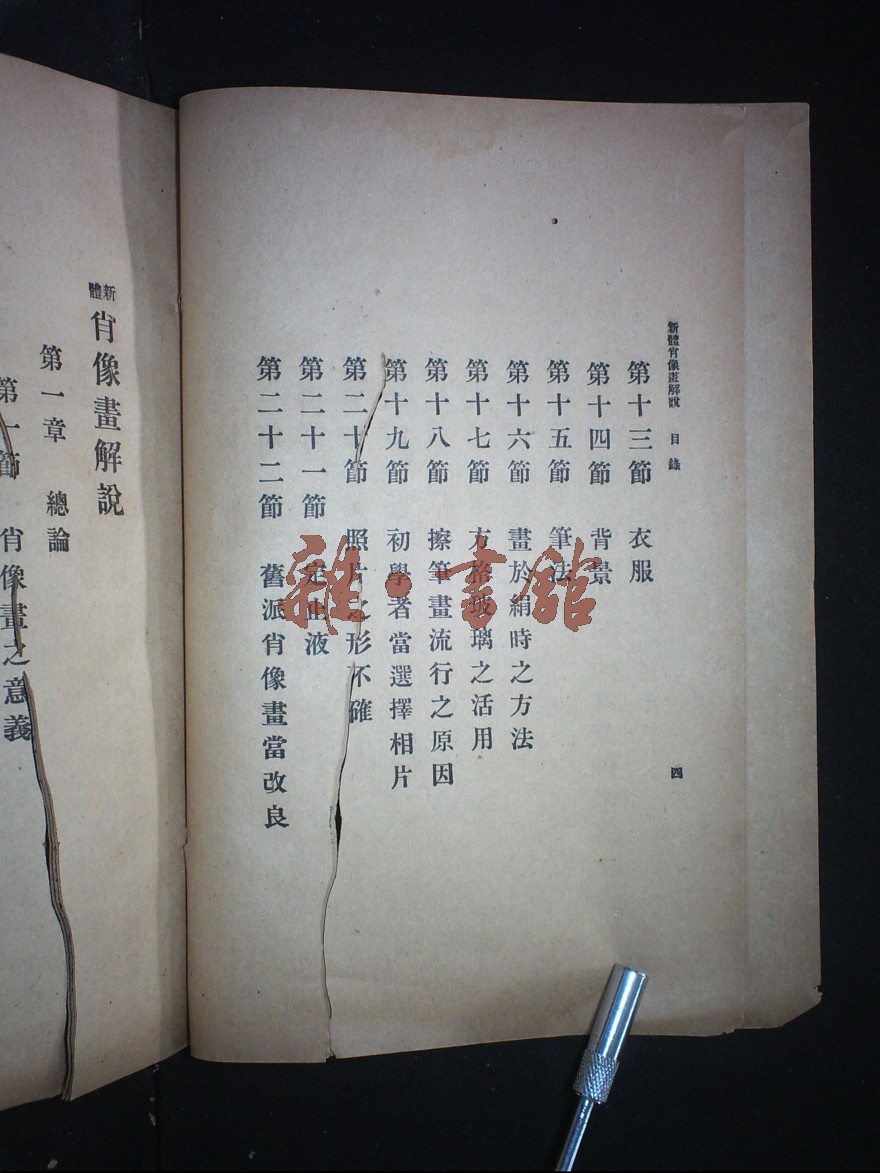 新體肖像畫解說 目錄
第十三節 衣服
第十四節 背景
第十五節 筆法
第十六節 畫於絹時之方法
第十七節 方格玻璃之活用
第十八節 擦筆畫流行之原因
第十九節 初學者當選擇相片
第二十節 照片之形不確
第二十一節 定止液
第二十二節 舊派肖像畫當改良
四
新體肖像畫解說
第一章 總論
第一節 肖像畫之意義
雜·書館